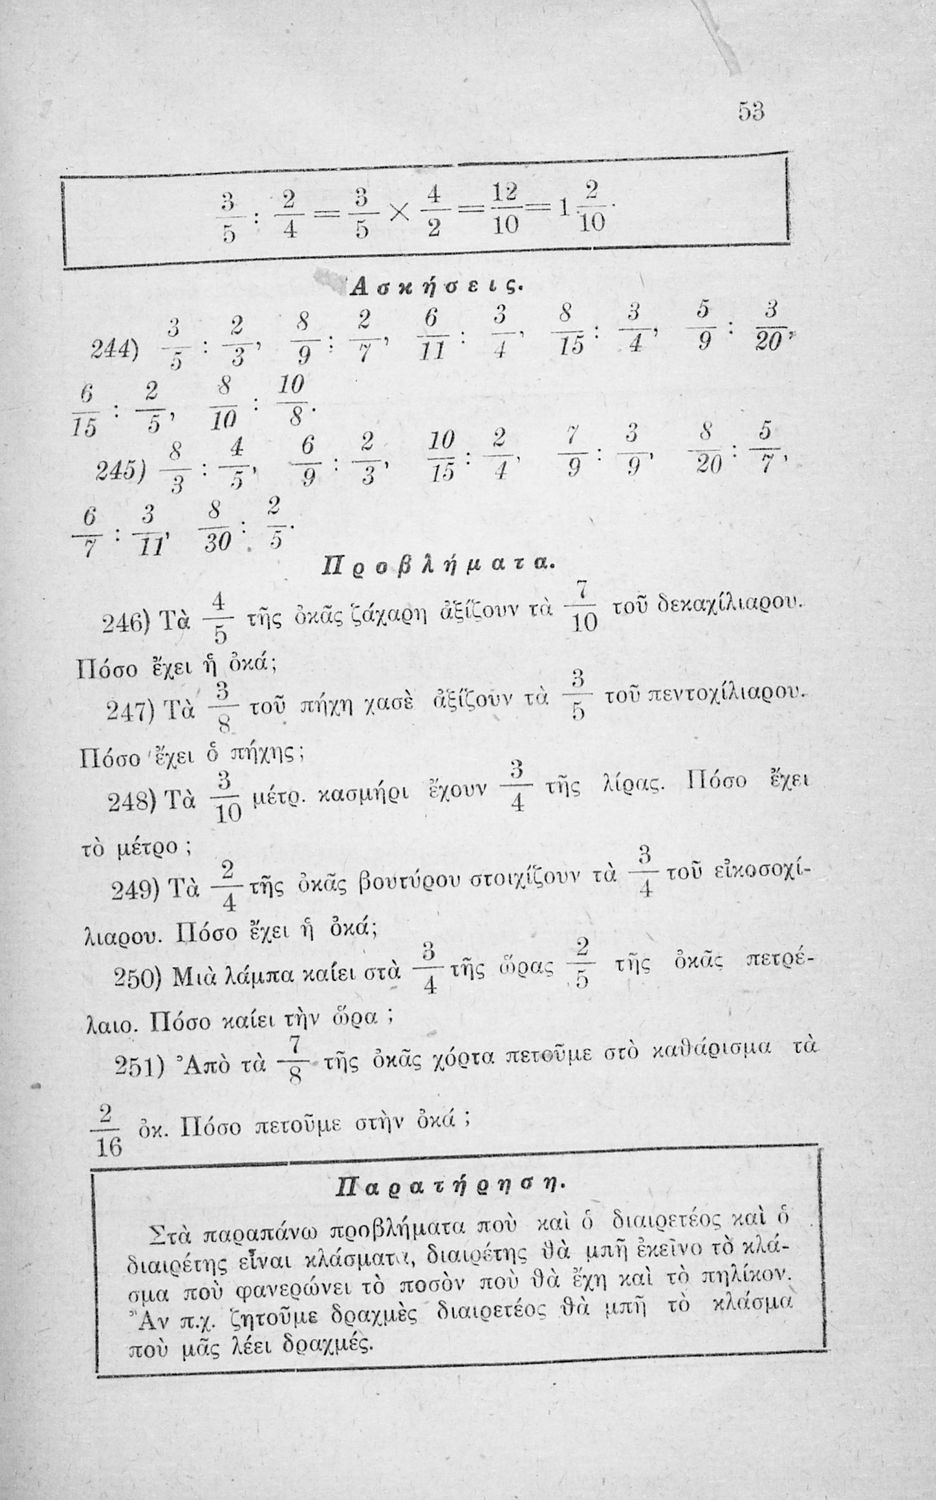 53
3/5 : 2/4 = 3/5 × 4/2 = 12/10 = 1 2/10.
Ἀσκήσεις.
244) 3/5 : 2/3, 8/9 : 2/7, 6/11 : 3/4, 8/15 : 3/4, 5/9 : 3/20,
6/15 : 2/5, 8/10 : 10/8.
245) 8/3 : 4/5, 6/9 : 2/3, 10/15 : 2/4, 7/9 : 3/9, 8/20 : 5/7,
6/7 : 3/11, 8/30 : 2/5.
Προβλήματα.
246) Τὰ 4/5 τῆς ὀκᾶς ζάχαρη ἀξίζουν τὰ 7/10 τοῦ δεκαχίλιαρου.
Πόσο ἔχει ἡ ὀκά;
247) Τὰ 3/8 τοῦ πήχη χασὲ ἀξίζουν τὰ 3/5 τοῦ πεντοχίλιαρου.
Πόσο ἔχει ὁ πήχης;
248) Τὰ 3/10 μέτρ. κασμήρι ἔχουν 3/4 τῆς λίρας. Πόσο ἔχει
τὸ μέτρο ;
249) Τὰ 2/4 τῆς ὀκᾶς βουτύρου στοιχίζουν τὰ 3/4 τοῦ εἰκοσοχί-
λιαρου. Πόσο ἔχει ἡ ὀκά;
250) Μιὰ λάμπα καίει στὰ 3/4 τῆς ὥρας 2/5 τῆς ὀκᾶς πετρέ-
λαιο. Πόσο καίει τὴν ὥρα ;
251) Ἀπὸ τὰ 7/8 τῆς ὀκᾶς χόρτα πετοῦμε στὸ καθάρισμα τὰ
2/16 ὀκ. Πόσο πετοῦμε στὴν ὀκά ;
Παρατήρηση.
Στὰ παραπάνω προβλήματα ποὺ καὶ ὁ διαιρετέος καὶ ὁ
διαιρέτης εἶναι κλάσματα, διαιρέτης θὰ μπῆ ἐκεῖνο τὸ κλά-
σμα ποὺ φανερώνει τὸ ποσὸν ποὺ θὰ ἔχη καὶ τὸ πηλίκον.
Ἂν π.χ. ζητοῦμε δραχμὲς διαιρετέος θὰ μπῆ τὸ κλάσμα
ποὺ μᾶς λέει δραχμές.